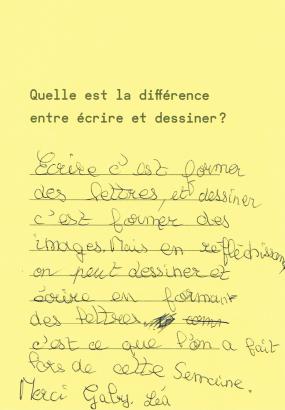 Quelle est la différence
entre écrire et dessiner?
Écrire c'est former
des lettres, et dessiner
c'est former des
images. Mais en réfléchissant
on peut dessiner et
écrire en formant
des lettres.
c'est ce que l'on a fait
lors de cette Semaine.
Merci Gaby. Léa